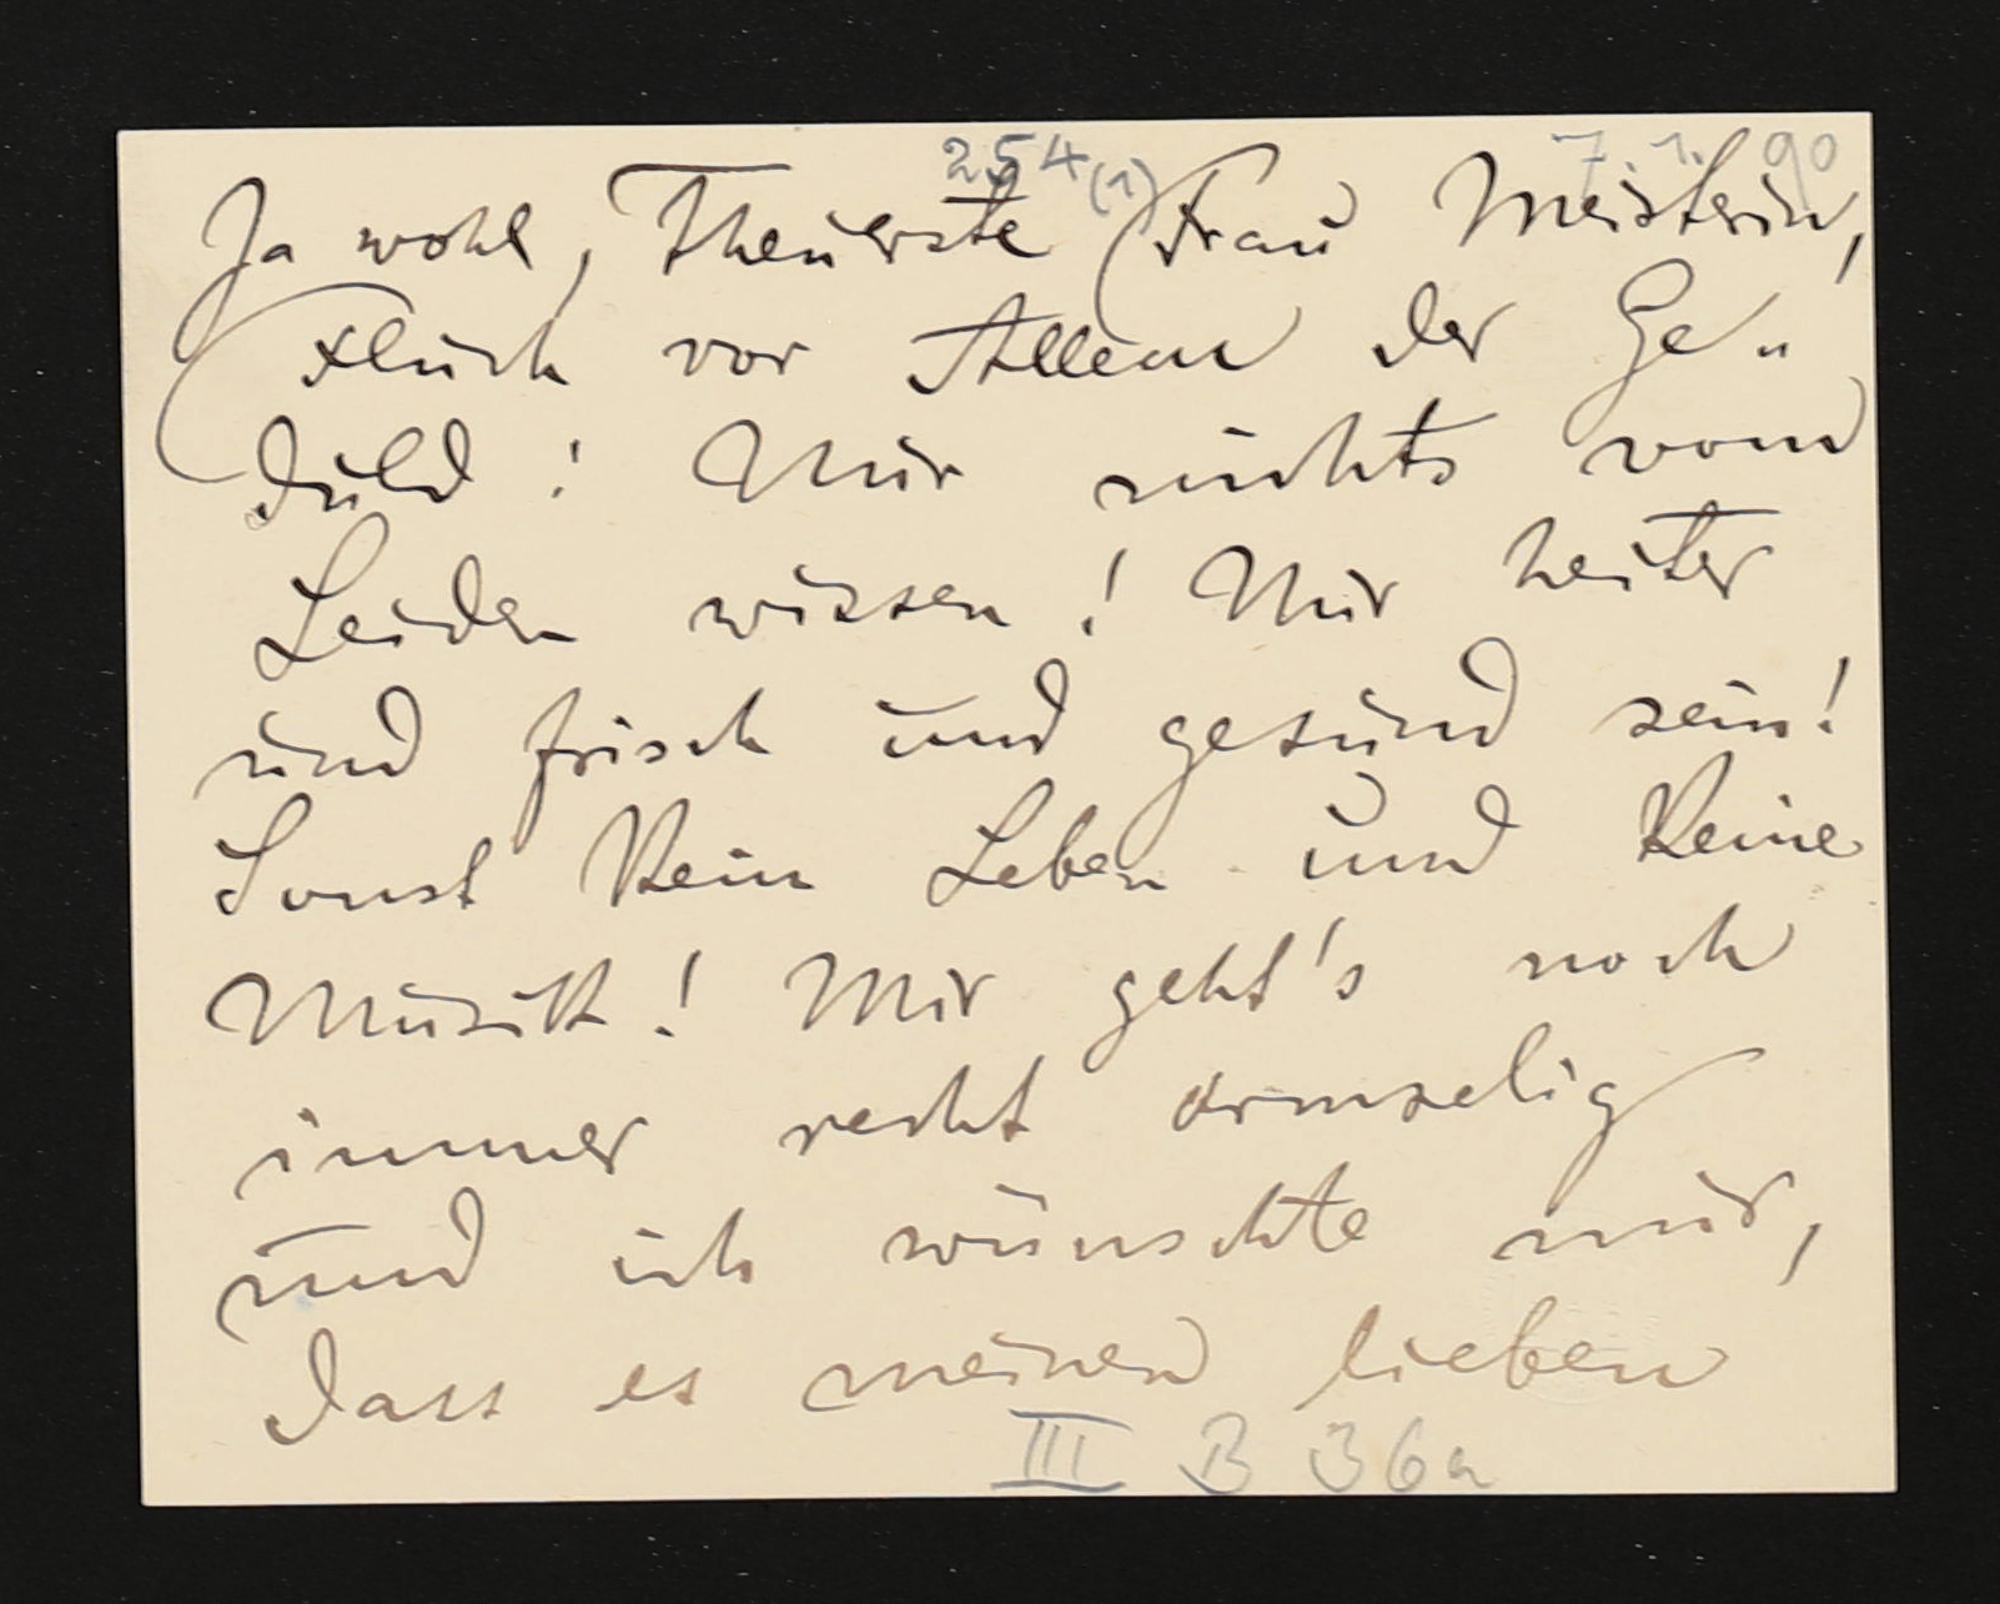 254 (1)
7. 1. 90
Ja wohl, Theuerste Frau Meisterin,
Fluch vor Allem der Ge-
duld! Nur nichts vom
Leiden wissen! Nur heiter
und frisch und gesund sein!
Sonst kein Leben und keine
Musik! Mir geht's noch
immer recht armselig
und ich wünschte nur,
dass es meinen lieben
III B 36a